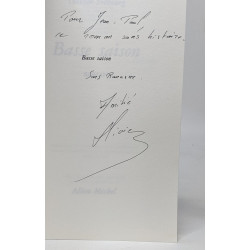 Pour Jean-Paul
ce roman sans histoire.
Basse saison
Basse saison
Sans Rancune
Amitié